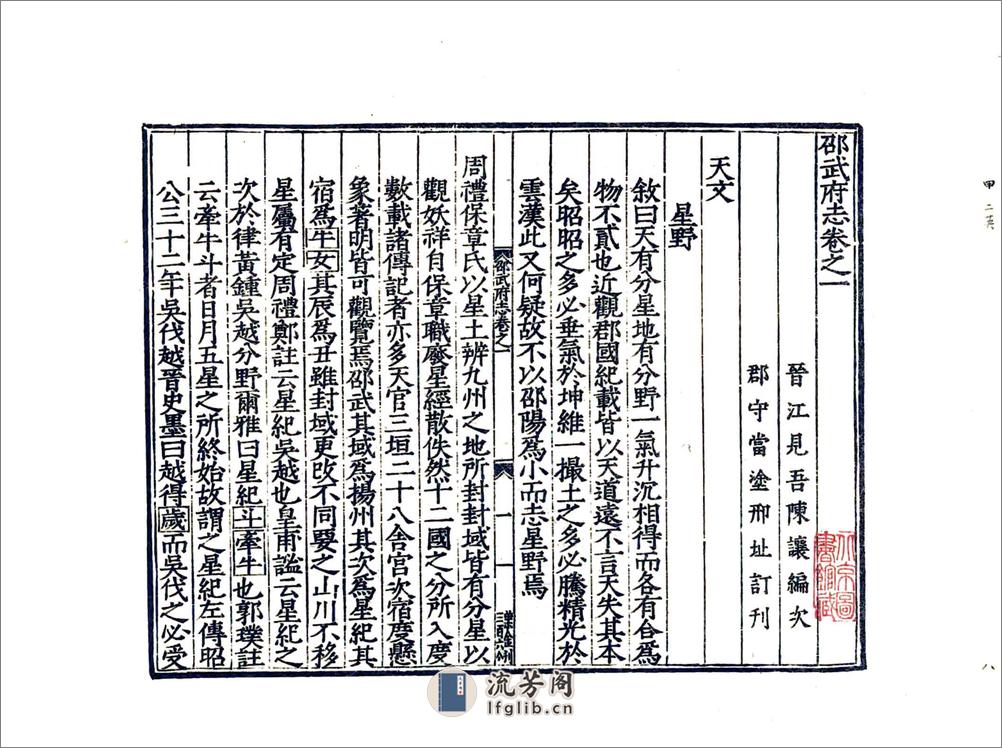 邵武府志卷之一
晉江見吾陳讓編次
郡守當塗邢址訂刊
天文
星野
敘曰天有分星地有分野一氣升沉相得而各有合爲
物不貳也近觀郡國紀載皆以天道遠不言天失其本
矣昭昭之多必垂氣於坤維一撮土之多必騰精光於
雲漢此又何疑故不以邵陽爲小而志星野焉
邵武府志卷之一
一
周禮保章氏以星土辨九州之地所封封域皆有分星以
觀妖祥自保章職廢星經散佚然十二國之分所入度
數載諸傳記者亦多天官三垣二十八舍宮次宿度懸
象著明皆可觀覽焉邵武其域爲揚州其次爲星紀其
宿爲牛女其辰爲丑雖封域更改不同要之山川不移
星屬有定周禮鄭註云星紀吳越也皇甫謐云星紀之
次於律黃鍾吳越分野爾雅曰星紀斗牽牛也郭璞註
云牽牛斗者日月五星之所終始故謂之星紀左傳昭
公三十二年吳伐越晉史墨曰越得歲而吳伐之必受
甲二英
八
北京圖
書館藏
流芳阁
lfglib.cn